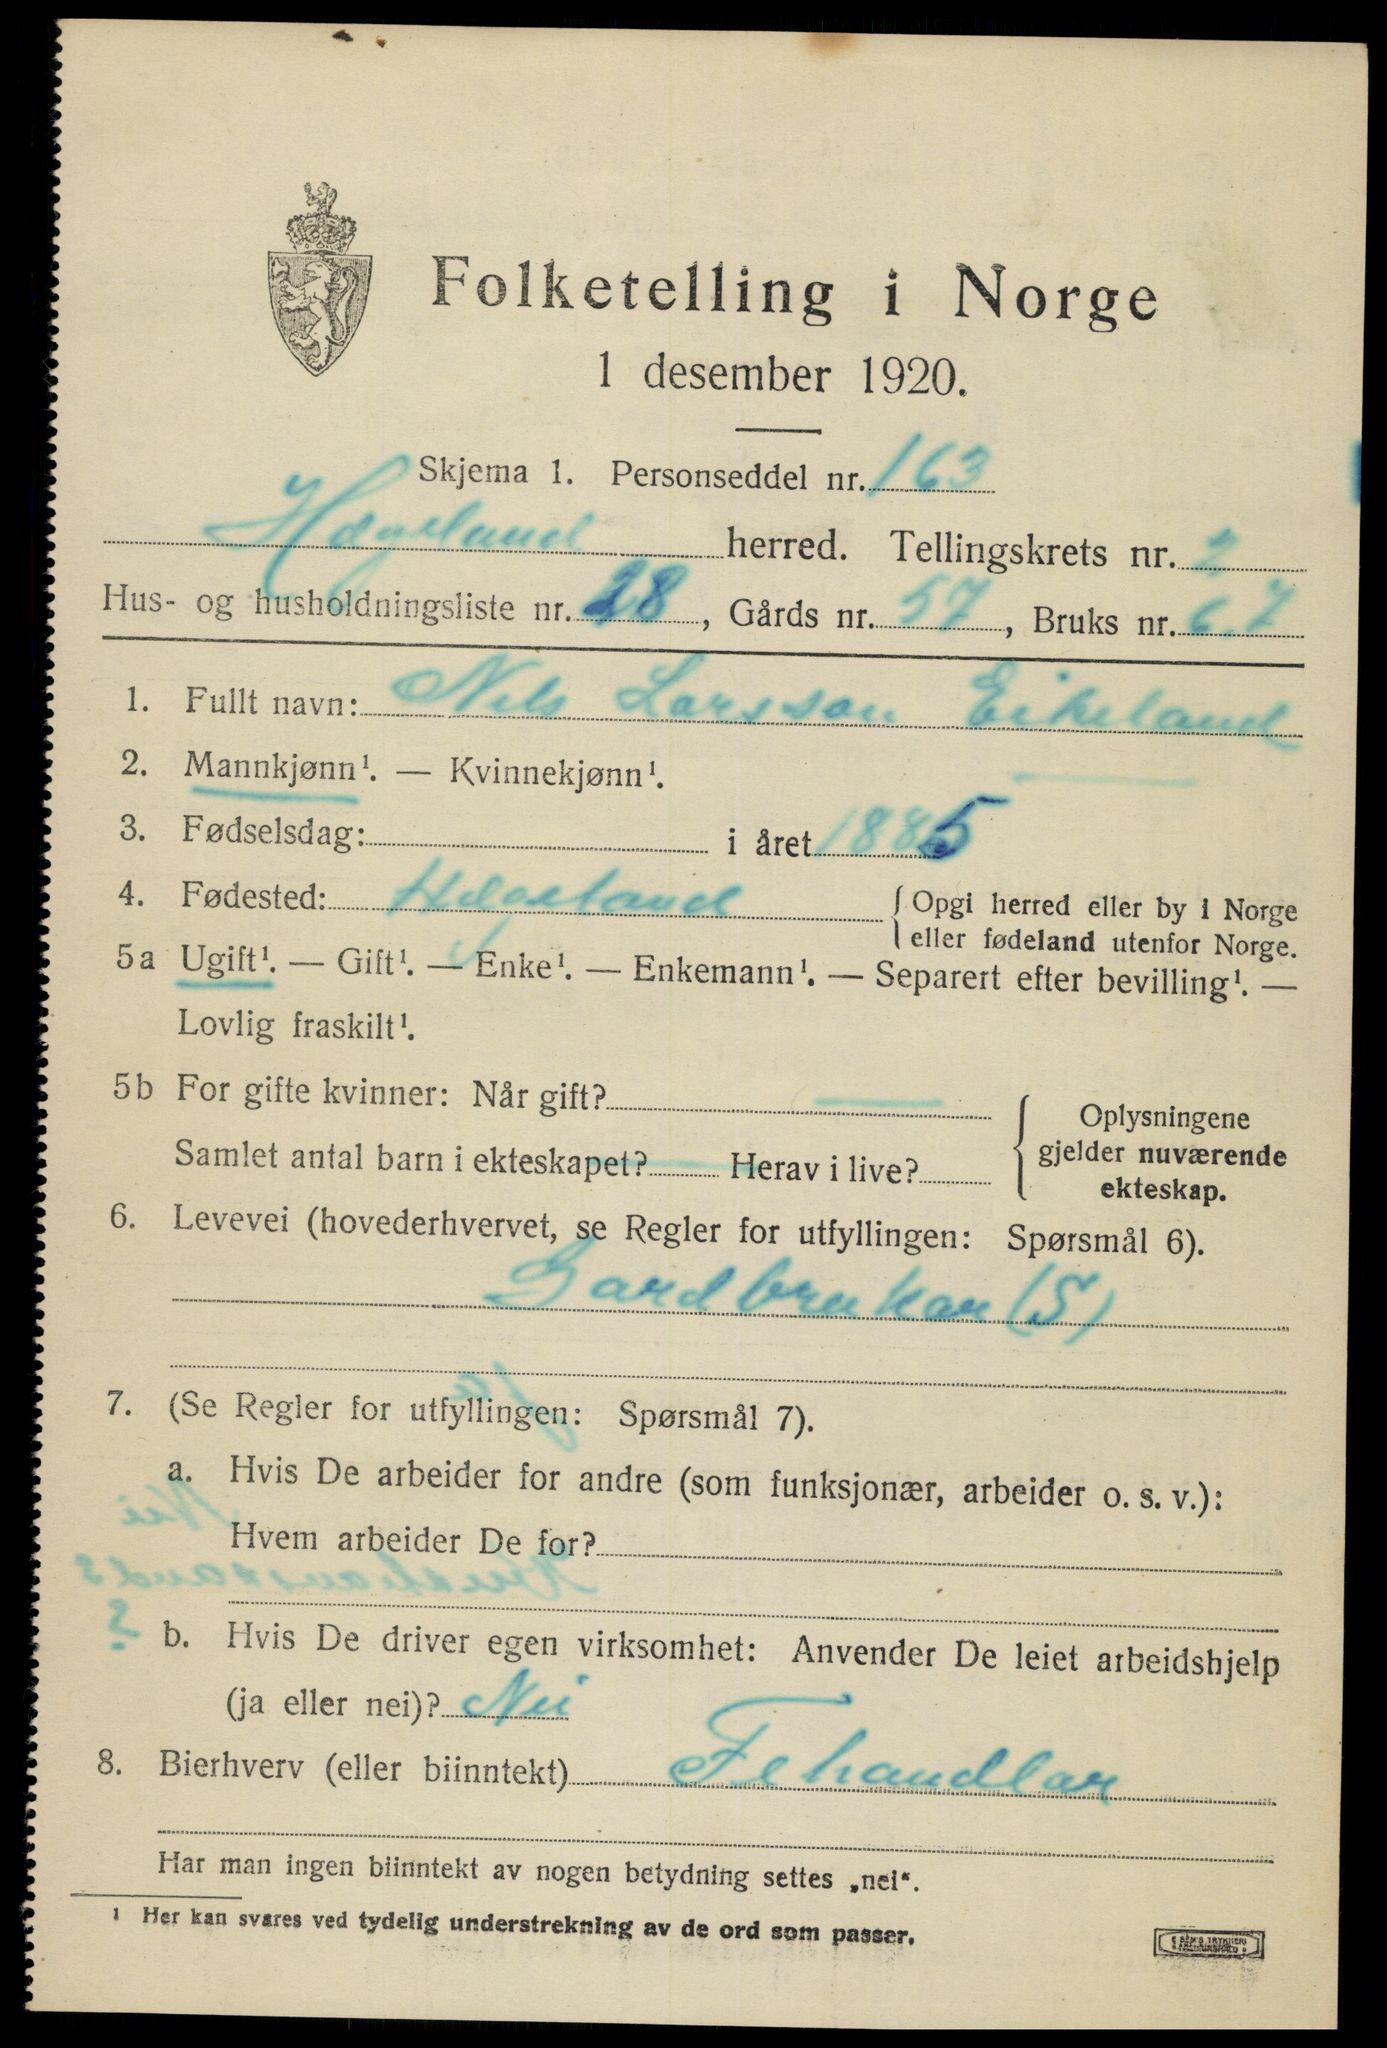 Folketelling i Norge
1 desember 1920.
Skjema 1. Personseddel nr. 163
Hægeland herred. Tellingskrets nr. 2
Hus- og husholdningsliste nr. 28, Gårds nr. 57, Bruks nr. 6.7
1. Fullt navn: Nils Larsson Eikeland
2. Mannkjønn¹. — Kvinnekjønn¹.
3. Fødselsdag: i året 1885
4. Fødested: Hægeland { Opgi herred eller by i Norge
eller fødeland utenfor Norge.
5a Ugift¹. — Gift¹. — Enke¹. — Enkemann¹. — Separert efter bevilling¹. —
Lovlig fraskilt¹.
5b For gifte kvinner: Når gift? — { Oplysningene
Samlet antal barn i ekteskapet? — Herav i live? gjelder nuværende
ekteskap.
6. Levevei (hovederhvervet, se Regler for utfyllingen: Spørsmål 6).
Gardbrukar (S)
7. (Se Regler for utfyllingen: Spørsmål 7).
a. Hvis De arbeider for andre (som funksjonær, arbeider o. s. v.):
Hvem arbeider De for?
b. Hvis De driver egen virksomhet: Anvender De leiet arbeidshjelp
(ja eller nei)? Nei
8. Bierhverv (eller biinntekt) Fehandlar
Har man ingen biinntekt av nogen betydning settes „nei“.
¹ Her kan svares ved tydelig understrekning av de ord som passer.